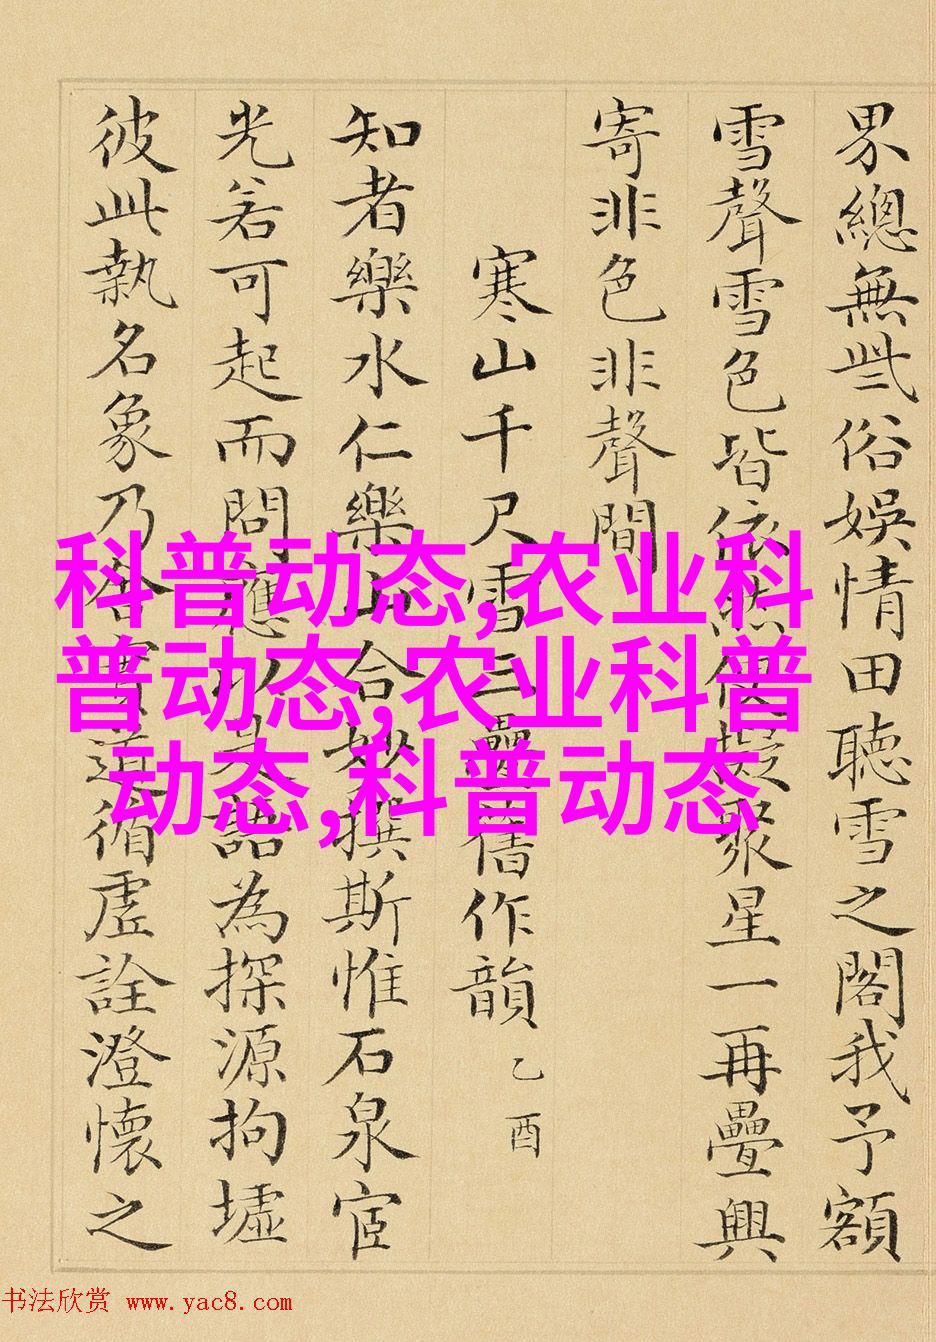 界總無世俗娛情田聽雪之閣我予額
雪聲雪色皆依然擬聚星一再疊興
寄非色非聲間
寒山千尺雪三疊舊作韻 乙酉
知者樂水仁樂山合妙撰斯惟石泉宦
光若可起而問應以語為探源拘墟
彼此執名象乃實道循虛詮澄懷之
科普动态,农业科
普动态,农业科普
动态,科普动态
书法欣赏 www.yac8.com